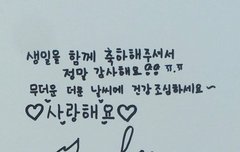 생일을 함께 축하해주셔서
정말 감사해요 ㅠ.ㅠ
무더운 더운 날씨에 건강 조심하세요~
♡사랑해요♡